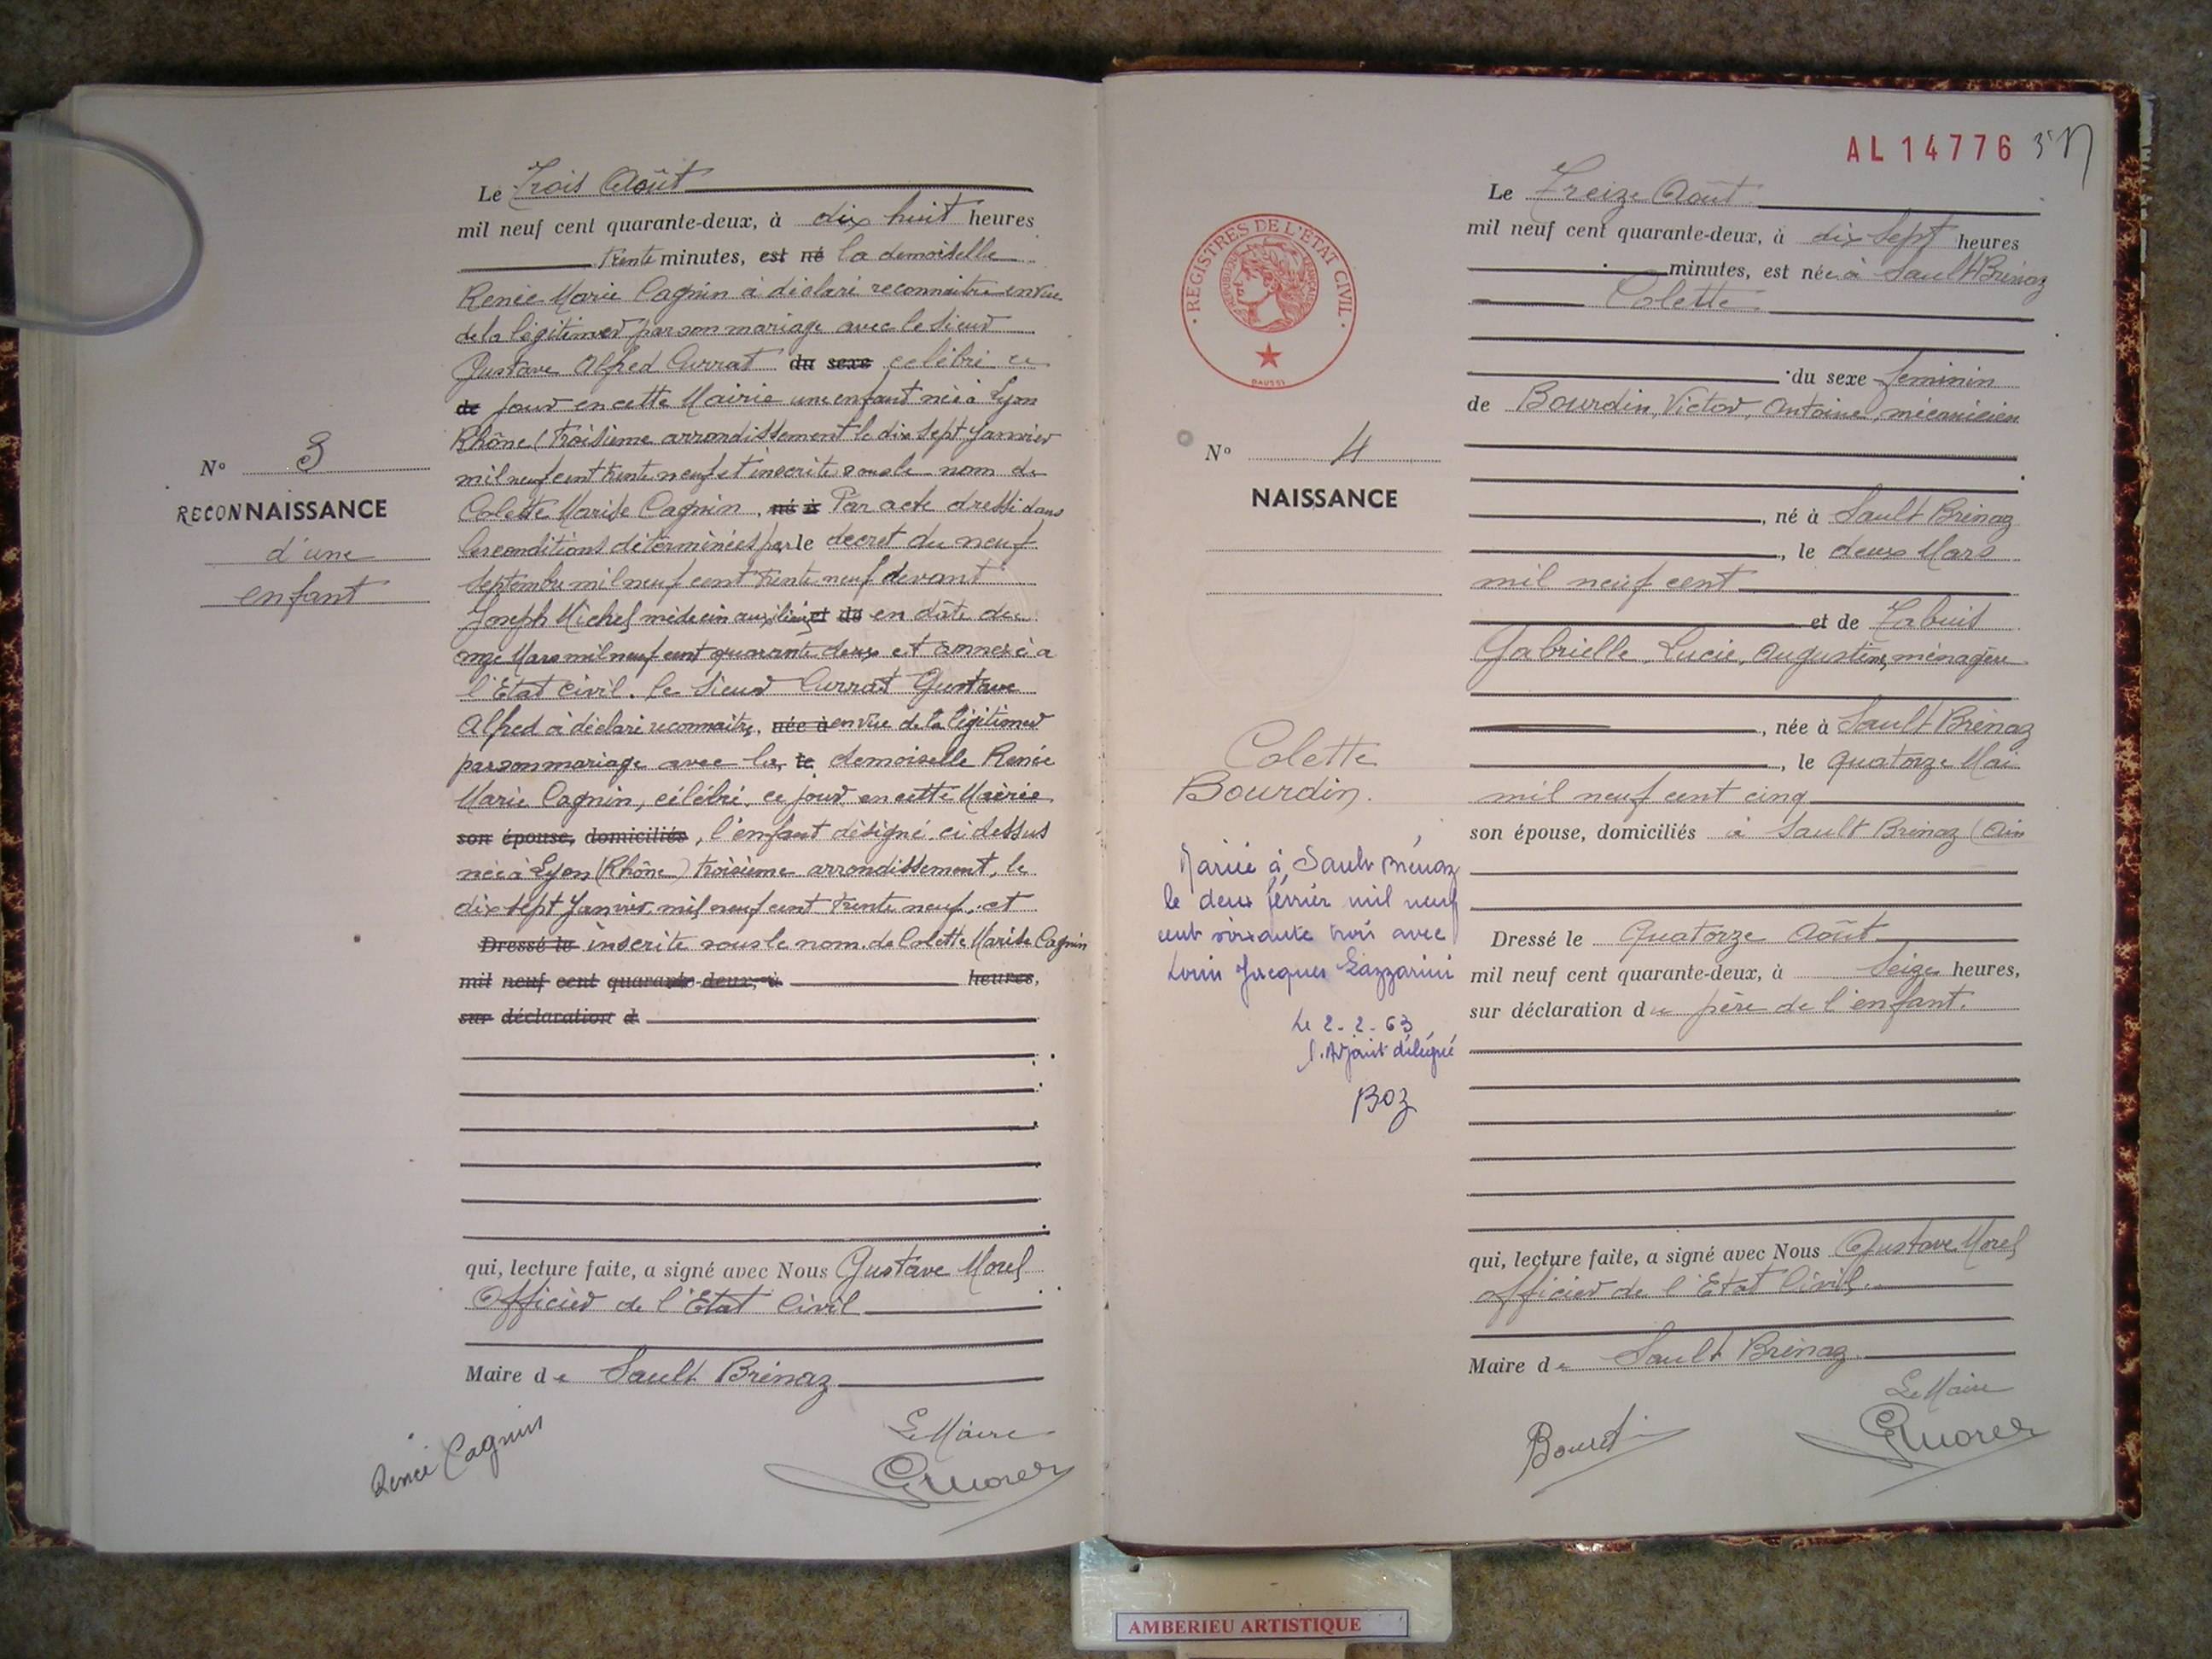 Le Trois Août
mil neuf cent quarante-deux, à dix huit heures
trente minutes, est né la demoiselle
Renée Marie Cagnin à déclaré reconnaitre en vue
de la légitimer par son mariage avec le sieur
Gustave Alfred Currat du sexe celébré ce
de jour en cette Mairie une enfant née à Lyon
Rhône (troisième arrondissement le dix sept Janvier
mil neuf cent trente neuf et inscrite sous le nom de
Colette Marise Cagnin, né à Par acte dressé dans
les conditions déterminées par le décret du neuf
Septembre mil neuf cent trente neuf devant
Joseph Michel médecin auxiliaire et de en date du
onze Mars mil neuf cent quarante deux et annexé à
l'Etat civil. Le sieur Currat Gustave
Alfred à déclaré reconnaitre, née à en vue de la légitimer
par son mariage avec la, le demoiselle Renée
Marie Cagnin, célébré, ce jour en cette Mairie
son épouse, domiciliés, l'enfant désigné ci dessus
née à Lyon (Rhône) troisième arrondissement, le
dix sept Janvier mil neuf cent trente neuf, et
Dressé le inscrite sous le nom de Colette Marise Cagnin
mil neuf cent quarante-deux, à heures,
sur déclaration d
qui, lecture faite, a signé avec Nous Gustave Morel
Officier de l'Etat Civil
Maire de Sault Brénaz
Le Maire
Renée Cagnin
GMorel
N° 3
RECONNAISSANCE
d'une
enfant
AL 14776
REGISTRES DE L'ÉTAT CIVIL
RÉPUBLIQUE FRANÇAISE
DAUSSI
Le Treize Août
mil neuf cent quarante-deux, à dix sept heures
minutes, est née à Sault Brénaz
Colette
du sexe féminin
de Bourdin, Victor, Antoine, mécanicien
, né à Sault Brénaz
, le deux Mars
mil neuf cent
et de
Gabrielle, Lucie, Augustine, ménagère
, née à Sault Brénaz
, le quatorze Mai
mil neuf cent cinq
son épouse, domiciliés à Sault Brénaz (Ain
Dressé le Quatorze Août
mil neuf cent quarante-deux, à Seize heures,
sur déclaration du père de l'enfant.
qui, lecture faite, a signé avec Nous Gustave Morel
officier de l'Etat Civil
Maire de Sault Brénaz
Le Maire
GMorel
N° 4
NAISSANCE
Colette
Bourdin.
Mariée à Sault Brénaz
le deux février mil neuf
cent soixante trois avec
Louis Jacques Lazzarini
Le 2-2-63
l'Adjoint délégué
Boz
AMBERIEU ARTISTIQUE